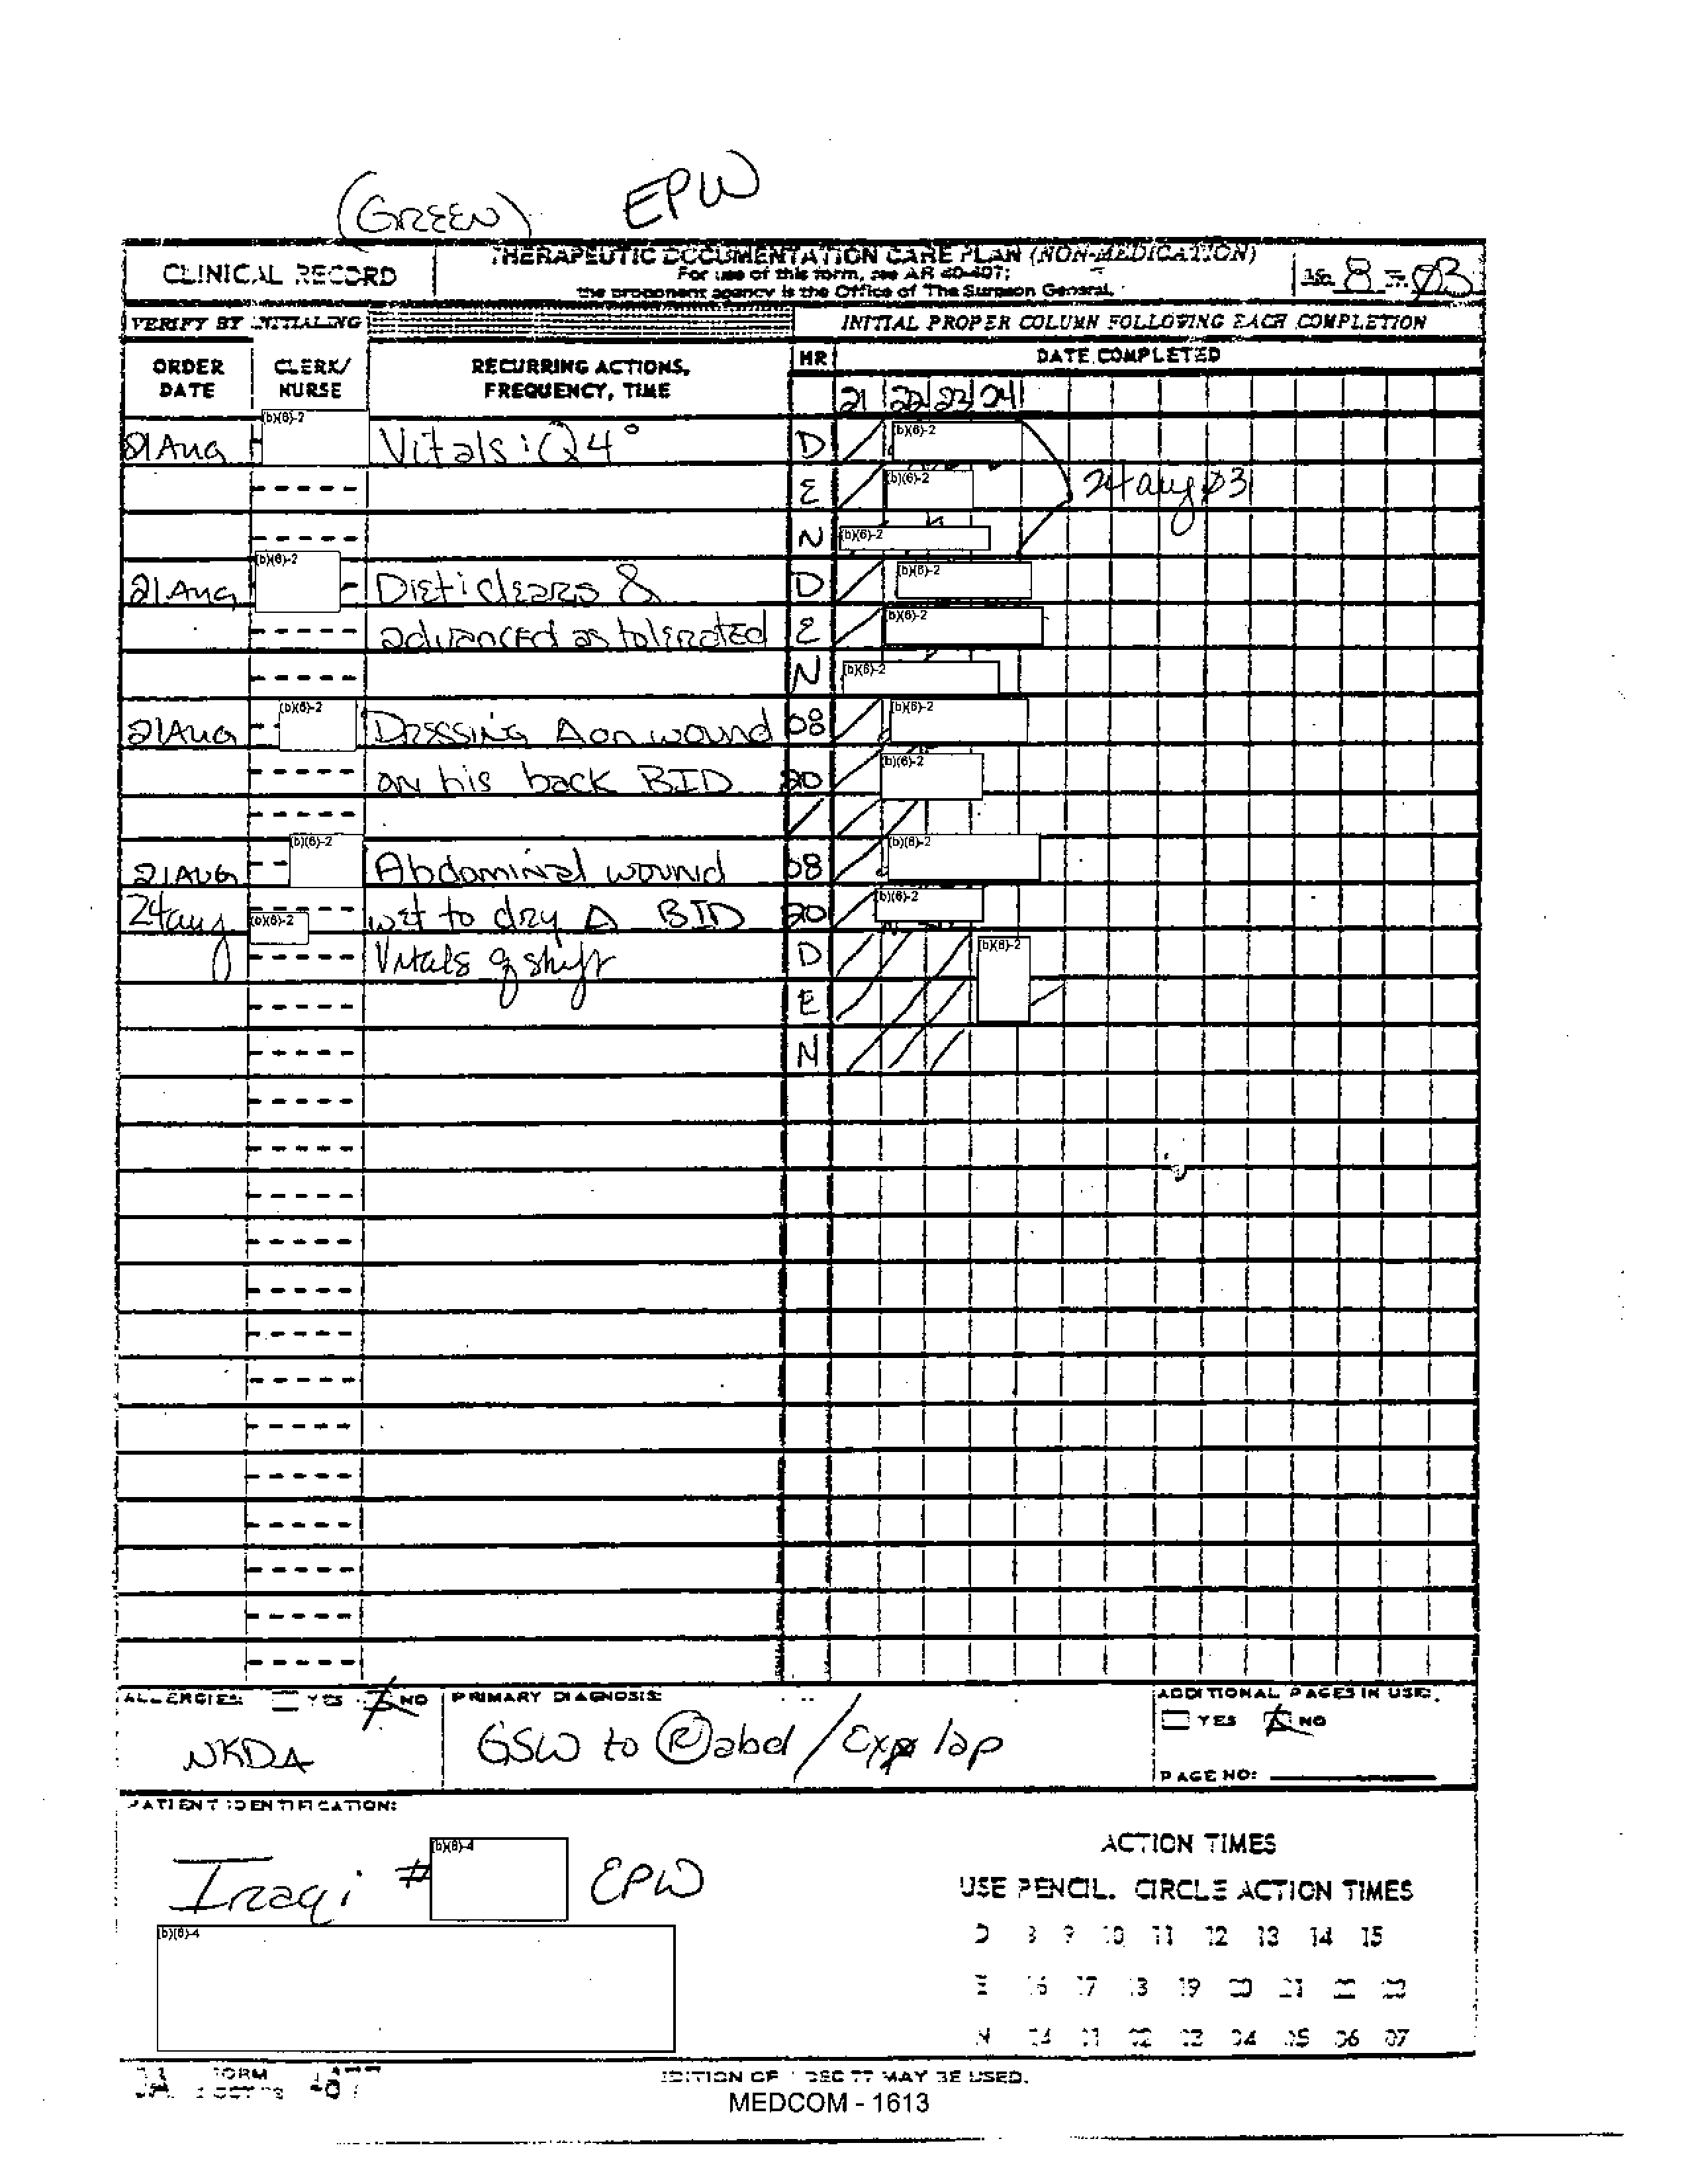 (GREEN) EPW
CLINICAL RECORD
THERAPEUTIC DOCUMENTATION CARE PLAN (NON-MEDICATION)
For use of this form, see AR 40-407;
the proponent agency is the Office of The Surgeon General.
8 03
VERIFY BY INITIALING
INITIAL PROPER COLUMN FOLLOWING EACH COMPLETION
ORDER DATE
CLERK/ NURSE
RECURRING ACTIONS, FREQUENCY, TIME
HR
DATE COMPLETED
21 22 23 24
21 Aug (b)(6)-2 Vitals: Q4° D (b)(6)-2
E (b)(6)-2 24 aug 03
N (b)(6)-2
21 Aug (b)(6)-2 Diet: clears & D (b)(6)-2
advanced as tolerated E (b)(6)-2
N (b)(6)-2
21 Aug (b)(6)-2 Dressing Δ on wound 08 (b)(6)-2
on his back BID 20 (b)(6)-2
21 AUG (b)(6)-2 Abdominal wound 08 (b)(6)-2
24 aug (b)(6)-2 wet to dry Δ BID 20 (b)(6)-2
Vitals q shift D (b)(6)-2
E
N
ALLERGIES: YES NO
NKDA
PRIMARY DIAGNOSIS:
GSW to Ⓡ abd / Exp lap
ADDITIONAL PAGES IN USE:
YES NO
PAGE NO:
PATIENT IDENTIFICATION:
Iraqi # (b)(6)-4 EPW
(b)(6)-4
ACTION TIMES
USE PENCIL. CIRCLE ACTION TIMES
D 8 9 10 11 12 13 14 15
E 16 17 18 19 20 21 22 23
N 24 01 02 03 04 05 06 07
DA FORM
EDITION OF 1 DEC 77 MAY BE USED.
MEDCOM - 1613